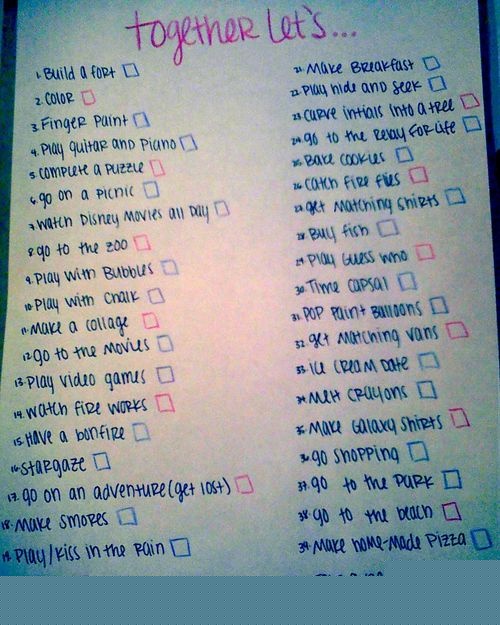 together let's...
1. Build a fort
2. color
3. Finger Paint
4. Play guitar and Piano
5. complete a Puzzle
6. go on a Picnic
7. watch Disney Movies all Day
8. go to the zoo
9. Play with Bubbles
10. Play with chalk
11. Make a collage
12. go to the Movies
13. Play video games
14. watch fire works
15. Have a bonfire
16. stargaze
17. go on an adventure (get lost)
18. Make smores
19. Play/kiss in the rain
21. Make Breakfast
22. Play hide and seek
23. carve intials into a tree
24. go to the Relay For life
25. Bake cookies
26. catch Fire flies
27. get Matching shirts
28. Buy fish
29. Play Guess who
30. Time capsal
31. POP Paint Balloons
32. get Matching vans
33. ice cream Date
34. Melt crayons
35. Make Galaxy shirts
36. go shopping
37. go to the Park
38. go to the beach
39. Make home-Made Pizza